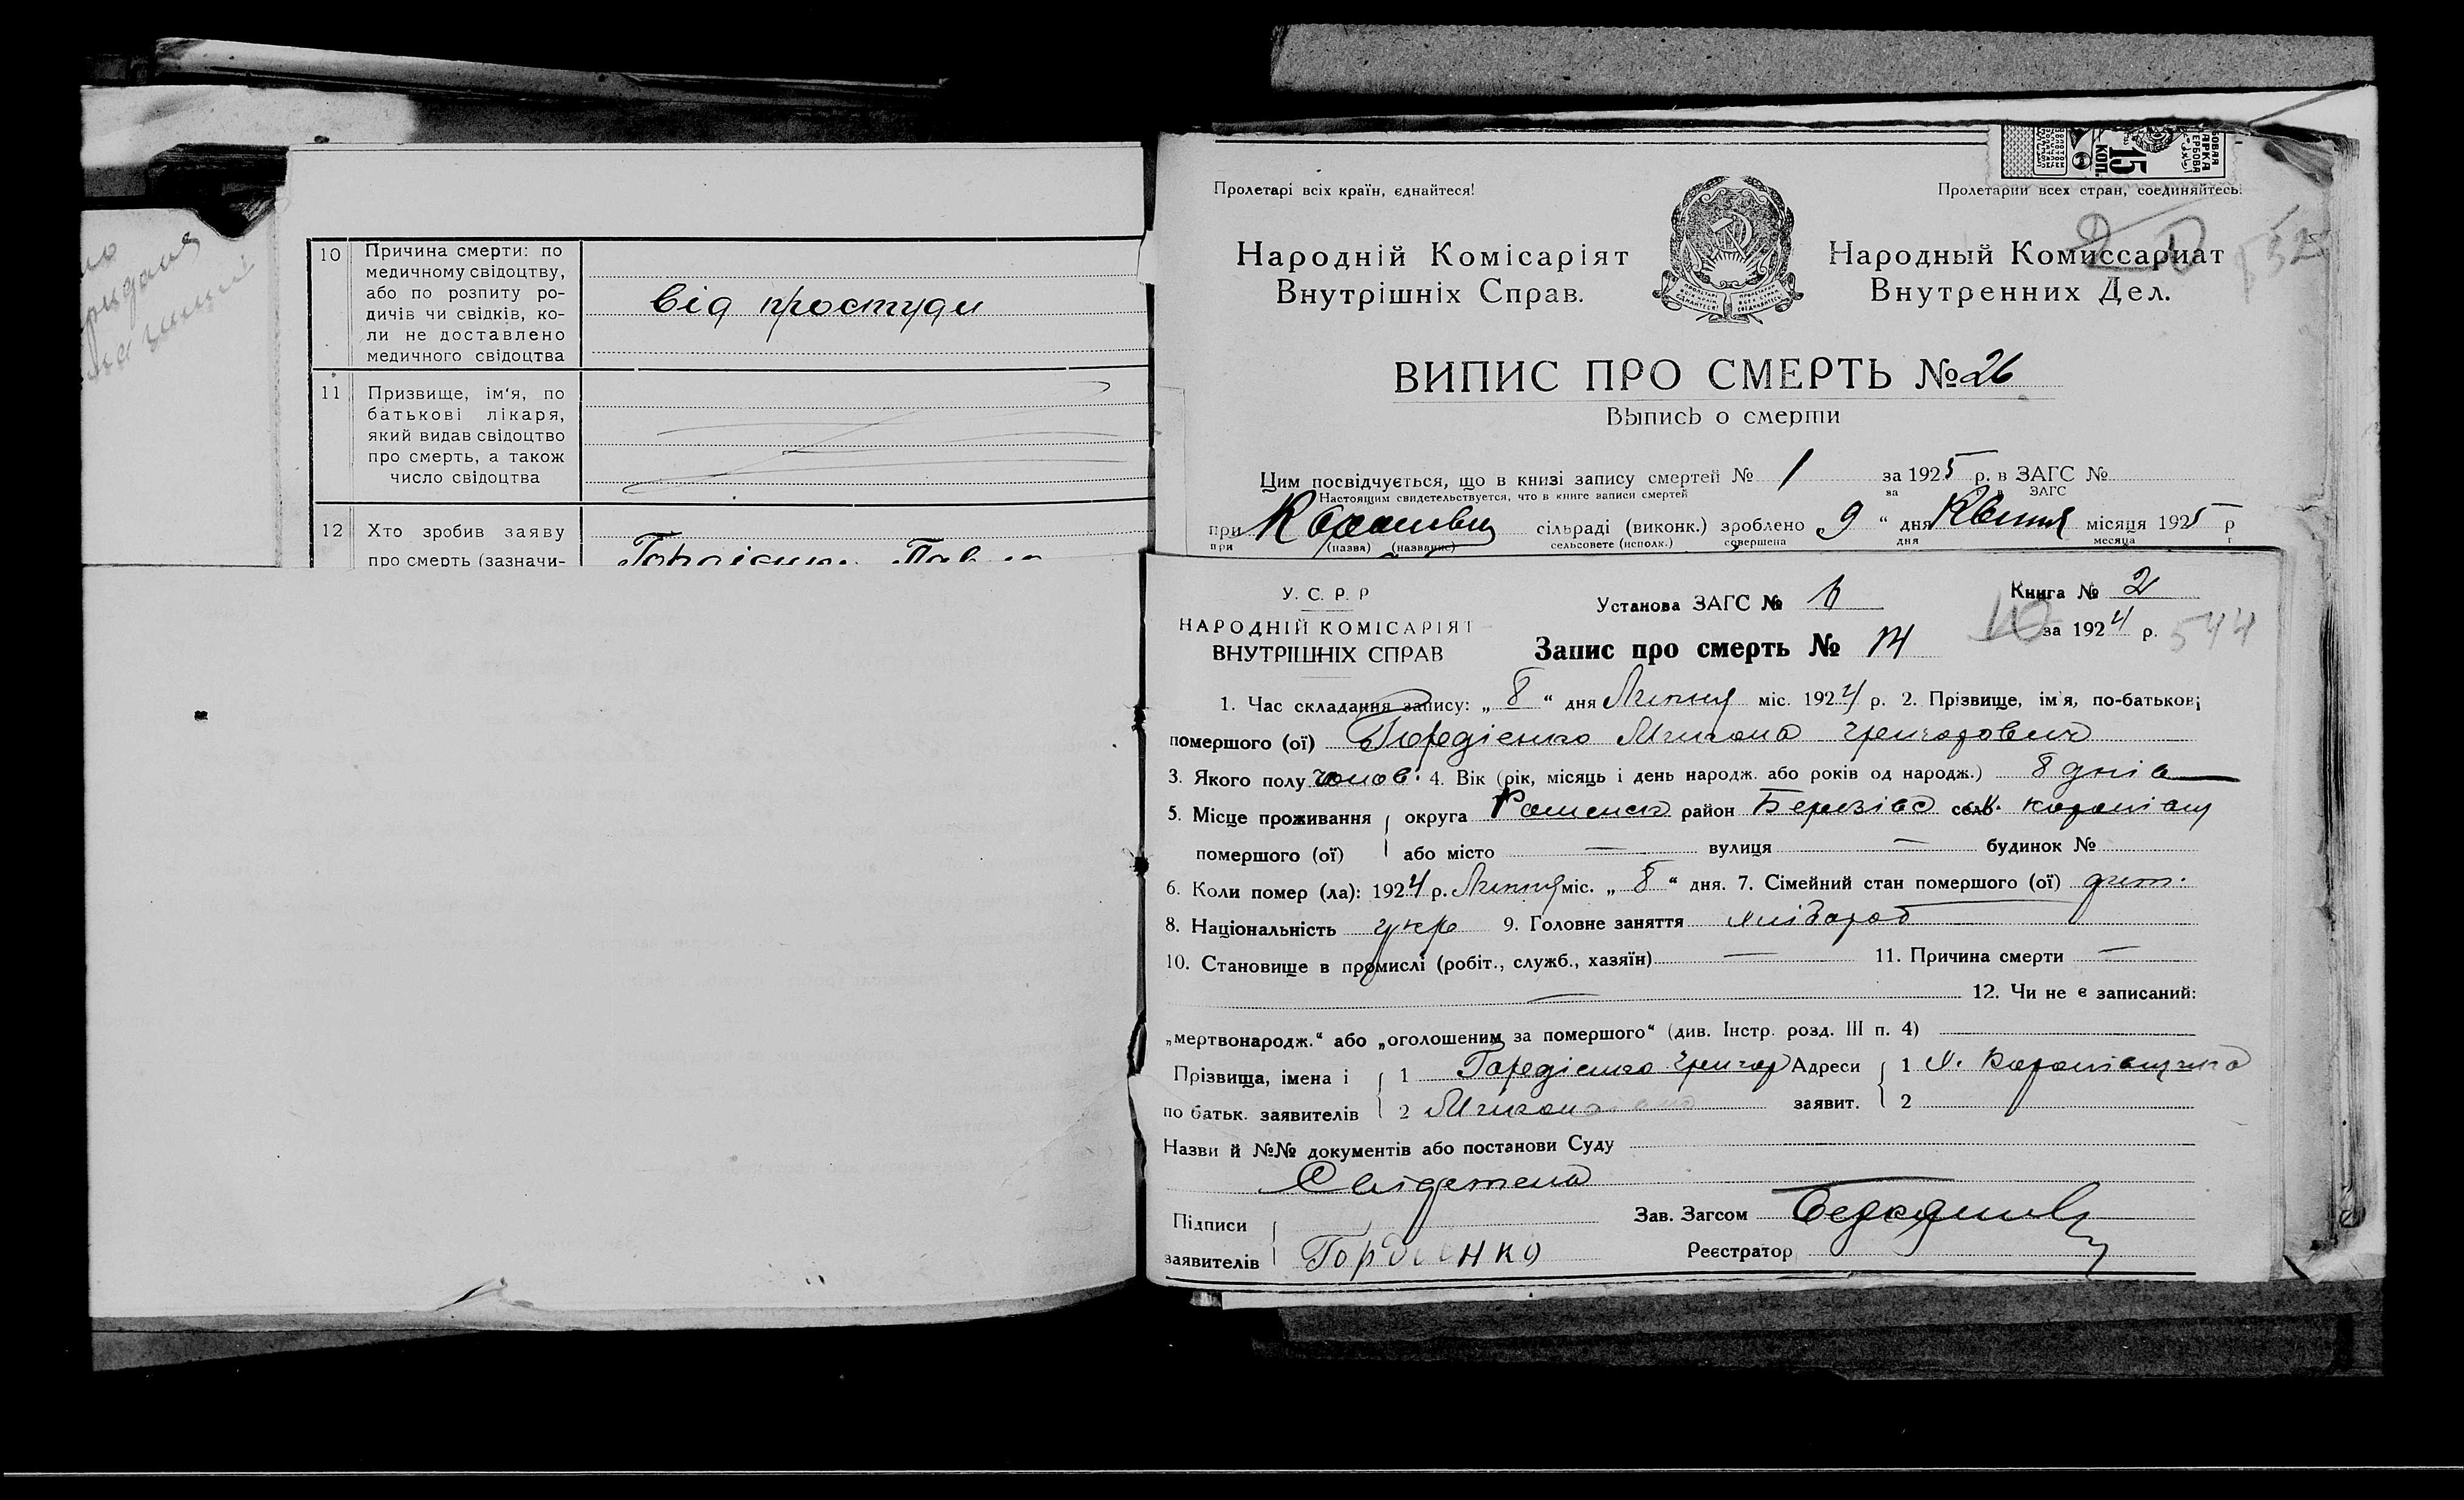 10 Причина смерти: по
медичному свідоцтву,
або по розпиту ро-
дичів чи свідків, ко-
ли не доставлено
медичного свідоцтва
від простуди
11 Призвище, ім'я, по
батькові лікаря,
який видав свідоцтво
про смерть, а також
число свідоцтва
12 Хто зробив заяву
про смерть (зазначи-
Пролетарі всіх країн, єднайтеся!
Пролетарии всех стран, соединяйтесь!
15 КОП.
Народній Комісаріят
Внутрішніх Справ.
Народный Комиссариат
Внутренних Дел.
ВИПИС ПРО СМЕРТЬ № 26
Выпись о смерти
Цим посвідчується, що в книзі запису смертей № 1 за 1925 р. в ЗАГС №
Настоящим свидетельствуется, что в книге записи смертей за в ЗАГС
при сільраді (виконк.) зроблено 9 " дня Квітня місяця 1925 р
при (назва) (название) сельсовете (исполк.) совершена дня месяца г
У. С. Р. Р
НАРОДНІЙ КОМІСАРІЯТ
ВНУТРІШНІХ СПРАВ
Установа ЗАГС № 6
Книга № 2
за 1924 р.
544
Запис про смерть № 14
1. Час складання запису: „ 8 “ дня Липня міс. 1924 р. 2. Прізвище, ім'я, по-батькові
помершого (ої) Гордієнко Микола Григорович
3. Якого полу чолов. 4. Вік (рік, місяць і день народж. або років од народж.) 8 днів
5. Місце проживання округа Роменськ район Березівс село
помершого (ої) або місто — вулиця — будинок №
6. Коли помер (ла): 1924 р. Липня міс. „ 8 “ дня. 7. Сімейний стан помершого (ої) дит.
8. Національність укр 9. Головне заняття хлібороб
10. Становище в промислі (робіт., служб., хазяїн) — 11. Причина смерти —
— 12. Чи не є записаний:
„мертвонародж.“ або „оголошеним за помершого“ (див. Інстр. розд. III п. 4)
Прізвища, імена і 1 Гордієнко Григор Адреси 1
по батьк. заявителів 2 заявит. 2
Назви й №№ документів або постанови Суду
Підписи
заявителів Гордиенко
Зав. Загсом
Реєстратор